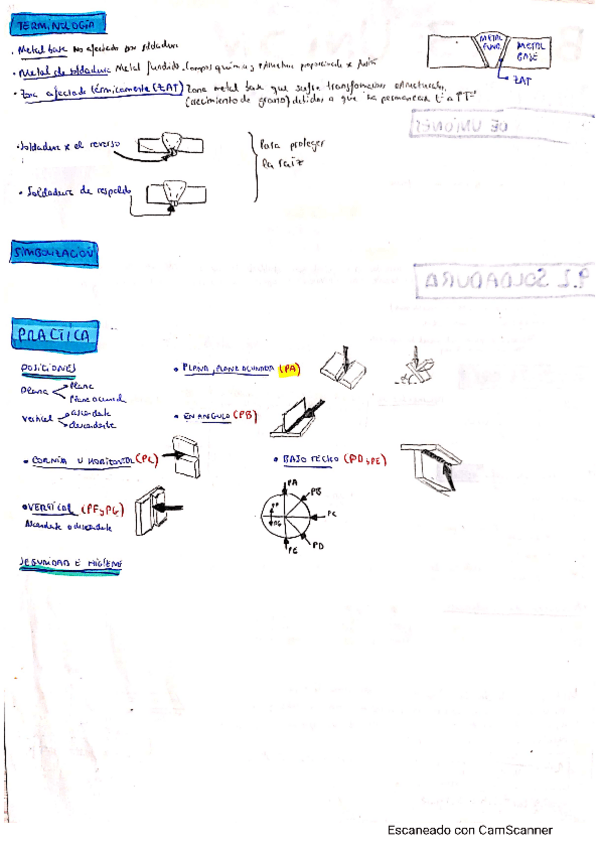 TERMINOLOGÍA
. Metal base No afectado por soldadura
• Metal de soldadura Metal fundido. Compos química y estructura proporcionada x fusión
• Zona afectada térmicamente (ZAT) Zona metal base que sufre transformaciones estructurales
(crecimiento de grano) debidas a que ha permanecido
METAL
FUND.
METAL
BASE
ZAT
• Soldadura x el reverso
• Soldadura de respaldo
Para proteger
la raíz
SIMBOLIZACIÓN
9.2 SOLDADURA
DE UNIONES
PRACTICA
POSICIONES
Plana
Plana
Plana acunada
Vertical
ascendente
descendente
• PLANA, PLANA ACUNADA (PA)
• EN ANGULO (PB)
• CORNISA U HORIZONTAL (PC)
• BAJO TECHO (PD y PE)
• VERTICAL (PF y PG)
Ascendente o descendente
PA
PB
PC
PD
PE
PF
PG
SEGURIDAD E HIGIENE
Escaneado con CamScanner